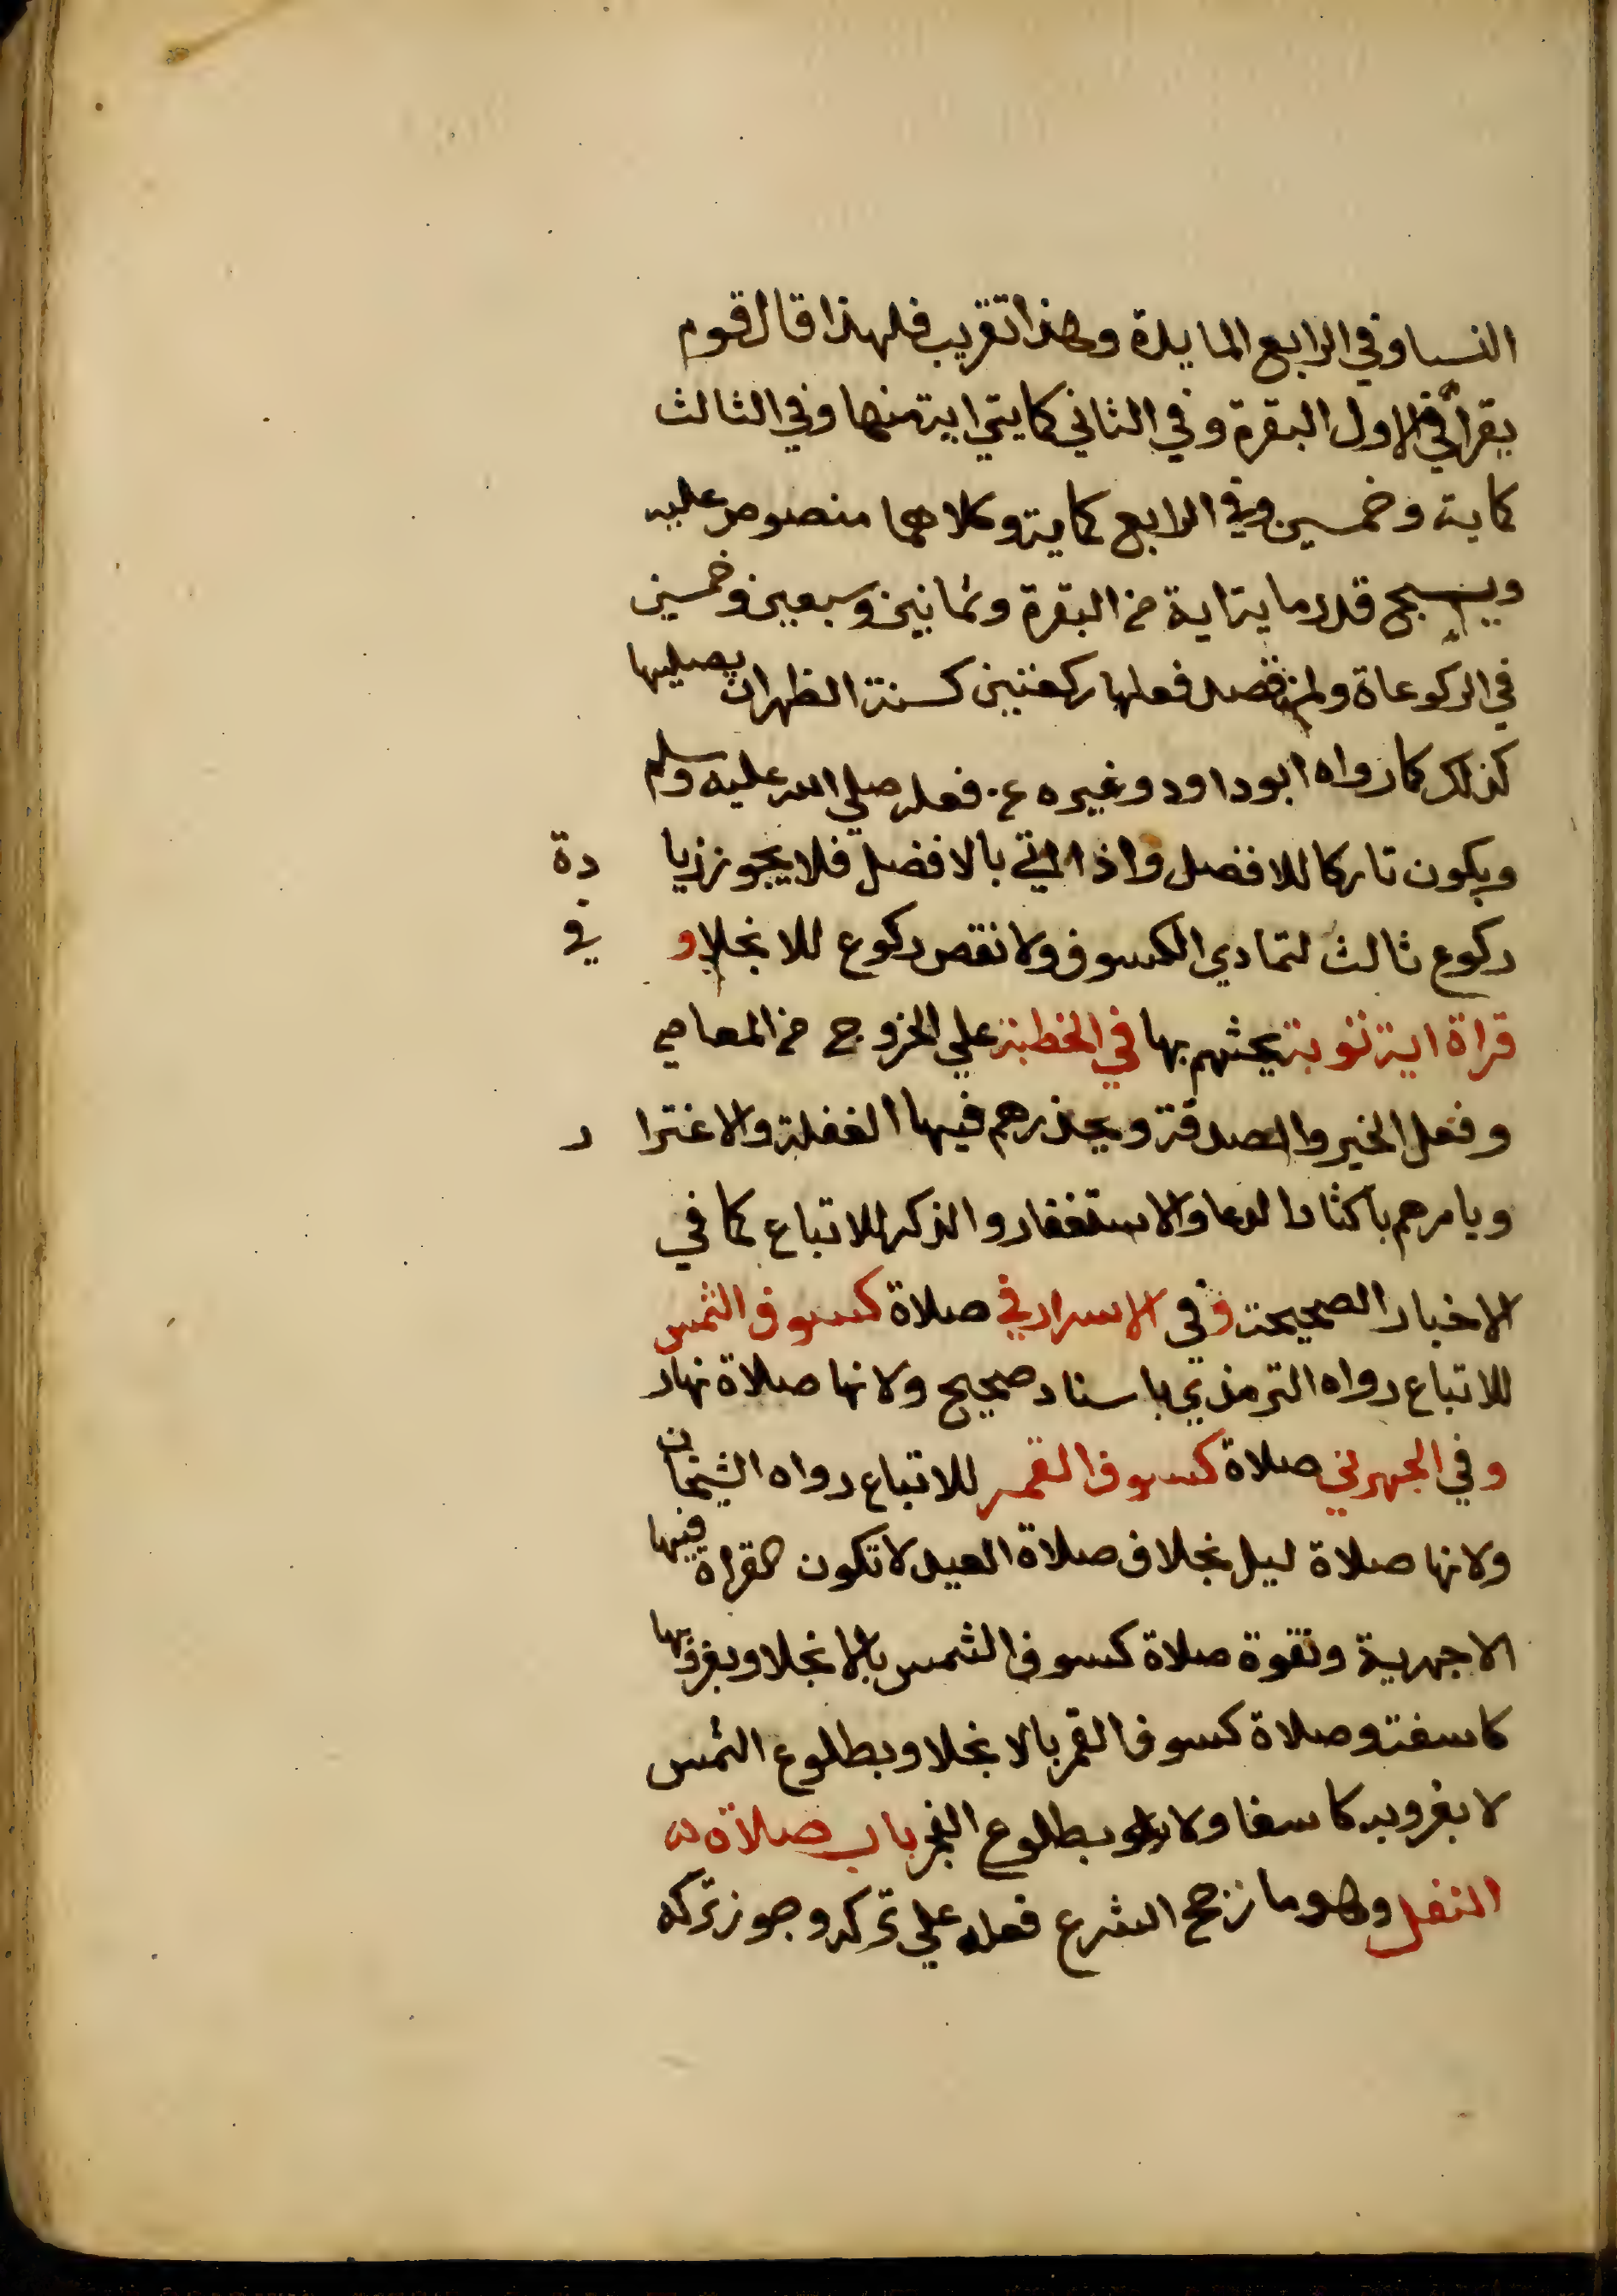 النسا وفي الرابع المايدة وهذا تقريب فلهذا قال قوم
يقرأ في الاول البقرة وفي الثاني كمايتي اية منها وفي الثالث
كماية وخمسين وفي الرابع كماية وكلاهما منصوص عليه
ويسبح قدر ماية اية من البقرة وثمانين وسبعين وخمسين
في الركوعاة ولمن قصد فعلها ركعتين كسنة الظهر ان يصليها
كذلك كما رواه ابو داود وغيره عن فعله صلي الله عليه وسلم
ويكون تاركا للافضل واذا اتي بالافضل فلا يجوز زيادة
ركوع ثالث لتمادي الكسوف ولا نقص ركوع للانجلا و في
قراة اية توبة يحثهم بها في الخطبة علي الخروج من المعاصي
وفعل الخير والصدقة ويحذرهم فيها الغفلة والاغترار
ويامرهم باكثار الدعا والاستغفار والذكر للاتباع كما في
الاخبار الصحيحة وفي الاسرار في صلاة كسوف الشمس
للاتباع رواه الترمذي باسناد صحيح ولانها صلاة نهار
وفي الجهر في صلاة كسوف القمر للاتباع رواه الشيخان
ولانها صلاة ليل بخلاف صلاة العيد لا تكون القراة فيها
الا جهرية وتفوة صلاة كسوف الشمس بالانجلا وبغروبها
كاسفة وصلاة كسوف القمر بالانجلا وبطلوع الشمس
لا بغروبه كاسفا ولا بطلوع الفجر باب صلاة
النفل وهو ما رجح الشرع فعله علي تركه وجوز تركه